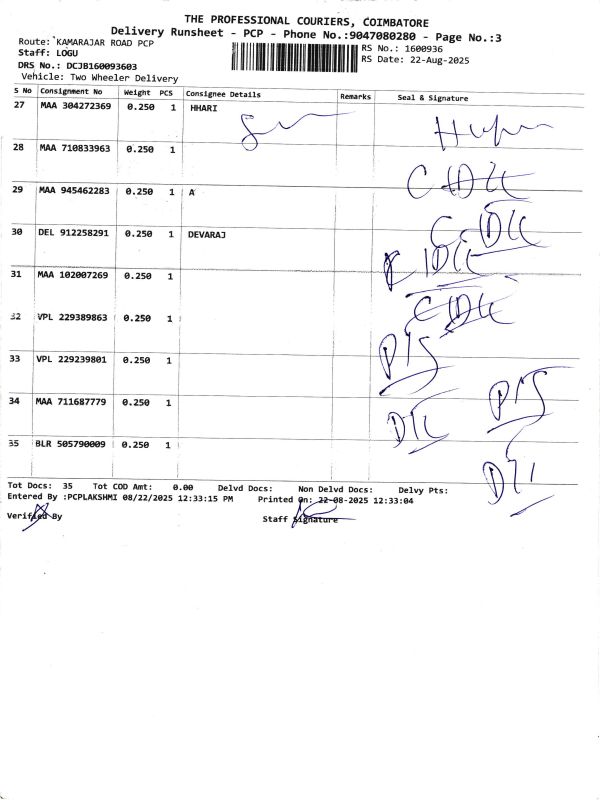 THE PROFESSIONAL COURIERS, COIMBATORE
Delivery Runsheet - PCP - Phone No.:9047080280 - Page No.:3
Route: KAMARAJAR ROAD PCP
RS No.: 1600936
Staff: LOGU
RS Date: 22-Aug-2025
DRS No.: DCJB160093603
Vehicle: Two Wheeler Delivery
S No Consignment No Weight PCS Consignee Details Remarks Seal & Signature
27 MAA 304272369 0.250 1 HHARI
28 MAA 710833963 0.250 1
29 MAA 945462283 0.250 1 A
30 DEL 912258291 0.250 1 DEVARAJ
31 MAA 102007269 0.250 1
32 VPL 229389863 0.250 1
33 VPL 229239801 0.250 1
34 MAA 711687779 0.250 1
35 BLR 505790009 0.250 1
Tot Docs: 35 Tot COD Amt: 0.00 Delvd Docs: Non Delvd Docs: Delvy Pts:
Entered By :PCPLAKSHMI 08/22/2025 12:33:15 PM Printed On: 22-08-2025 12:33:04
Verified By Staff Signature